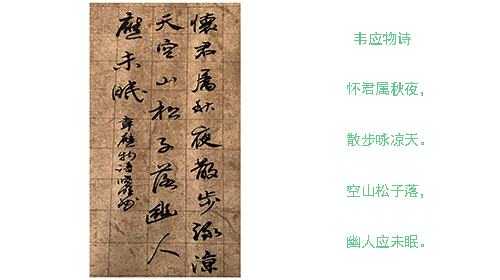 懷君属秋夜散步詠涼
天空山松子落幽人
應未眠
韋應物诗
韦应物诗
怀君属秋夜，
散步咏凉天。
空山松子落，
幽人应未眠。